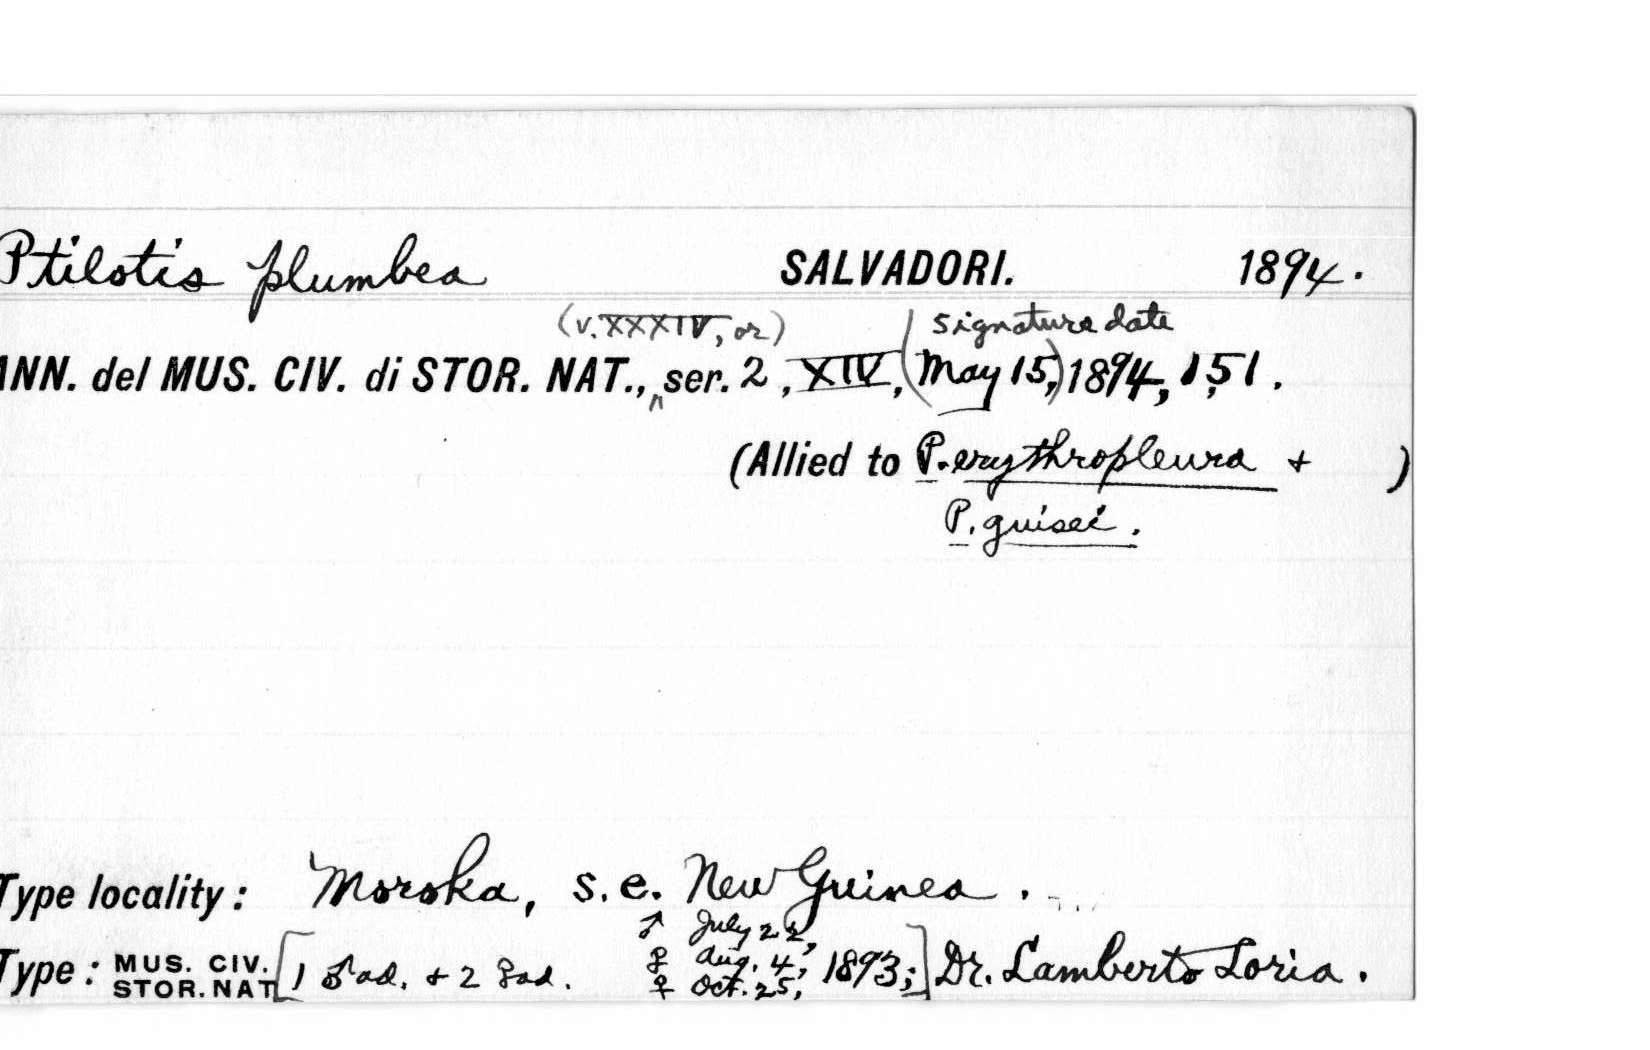 Ptilotis plumbea SALVADORI. 1894.
(v. XXXIV, or) signature date
ANN. del MUS. CIV. di STOR. NAT., ser. 2, XIV, (May 15,) 1894, 151.
(Allied to P. erythropleura + )
P. guisei.
Type locality: Moroka, s.e. New Guinea.
♂ July 22,
Type: MUS. CIV. STOR. NAT [1 ♂ ad. + 2 ♀ ad. ♀ Aug. 4, 1893;] Dr. Lamberto Loria.
♀ Oct. 25,